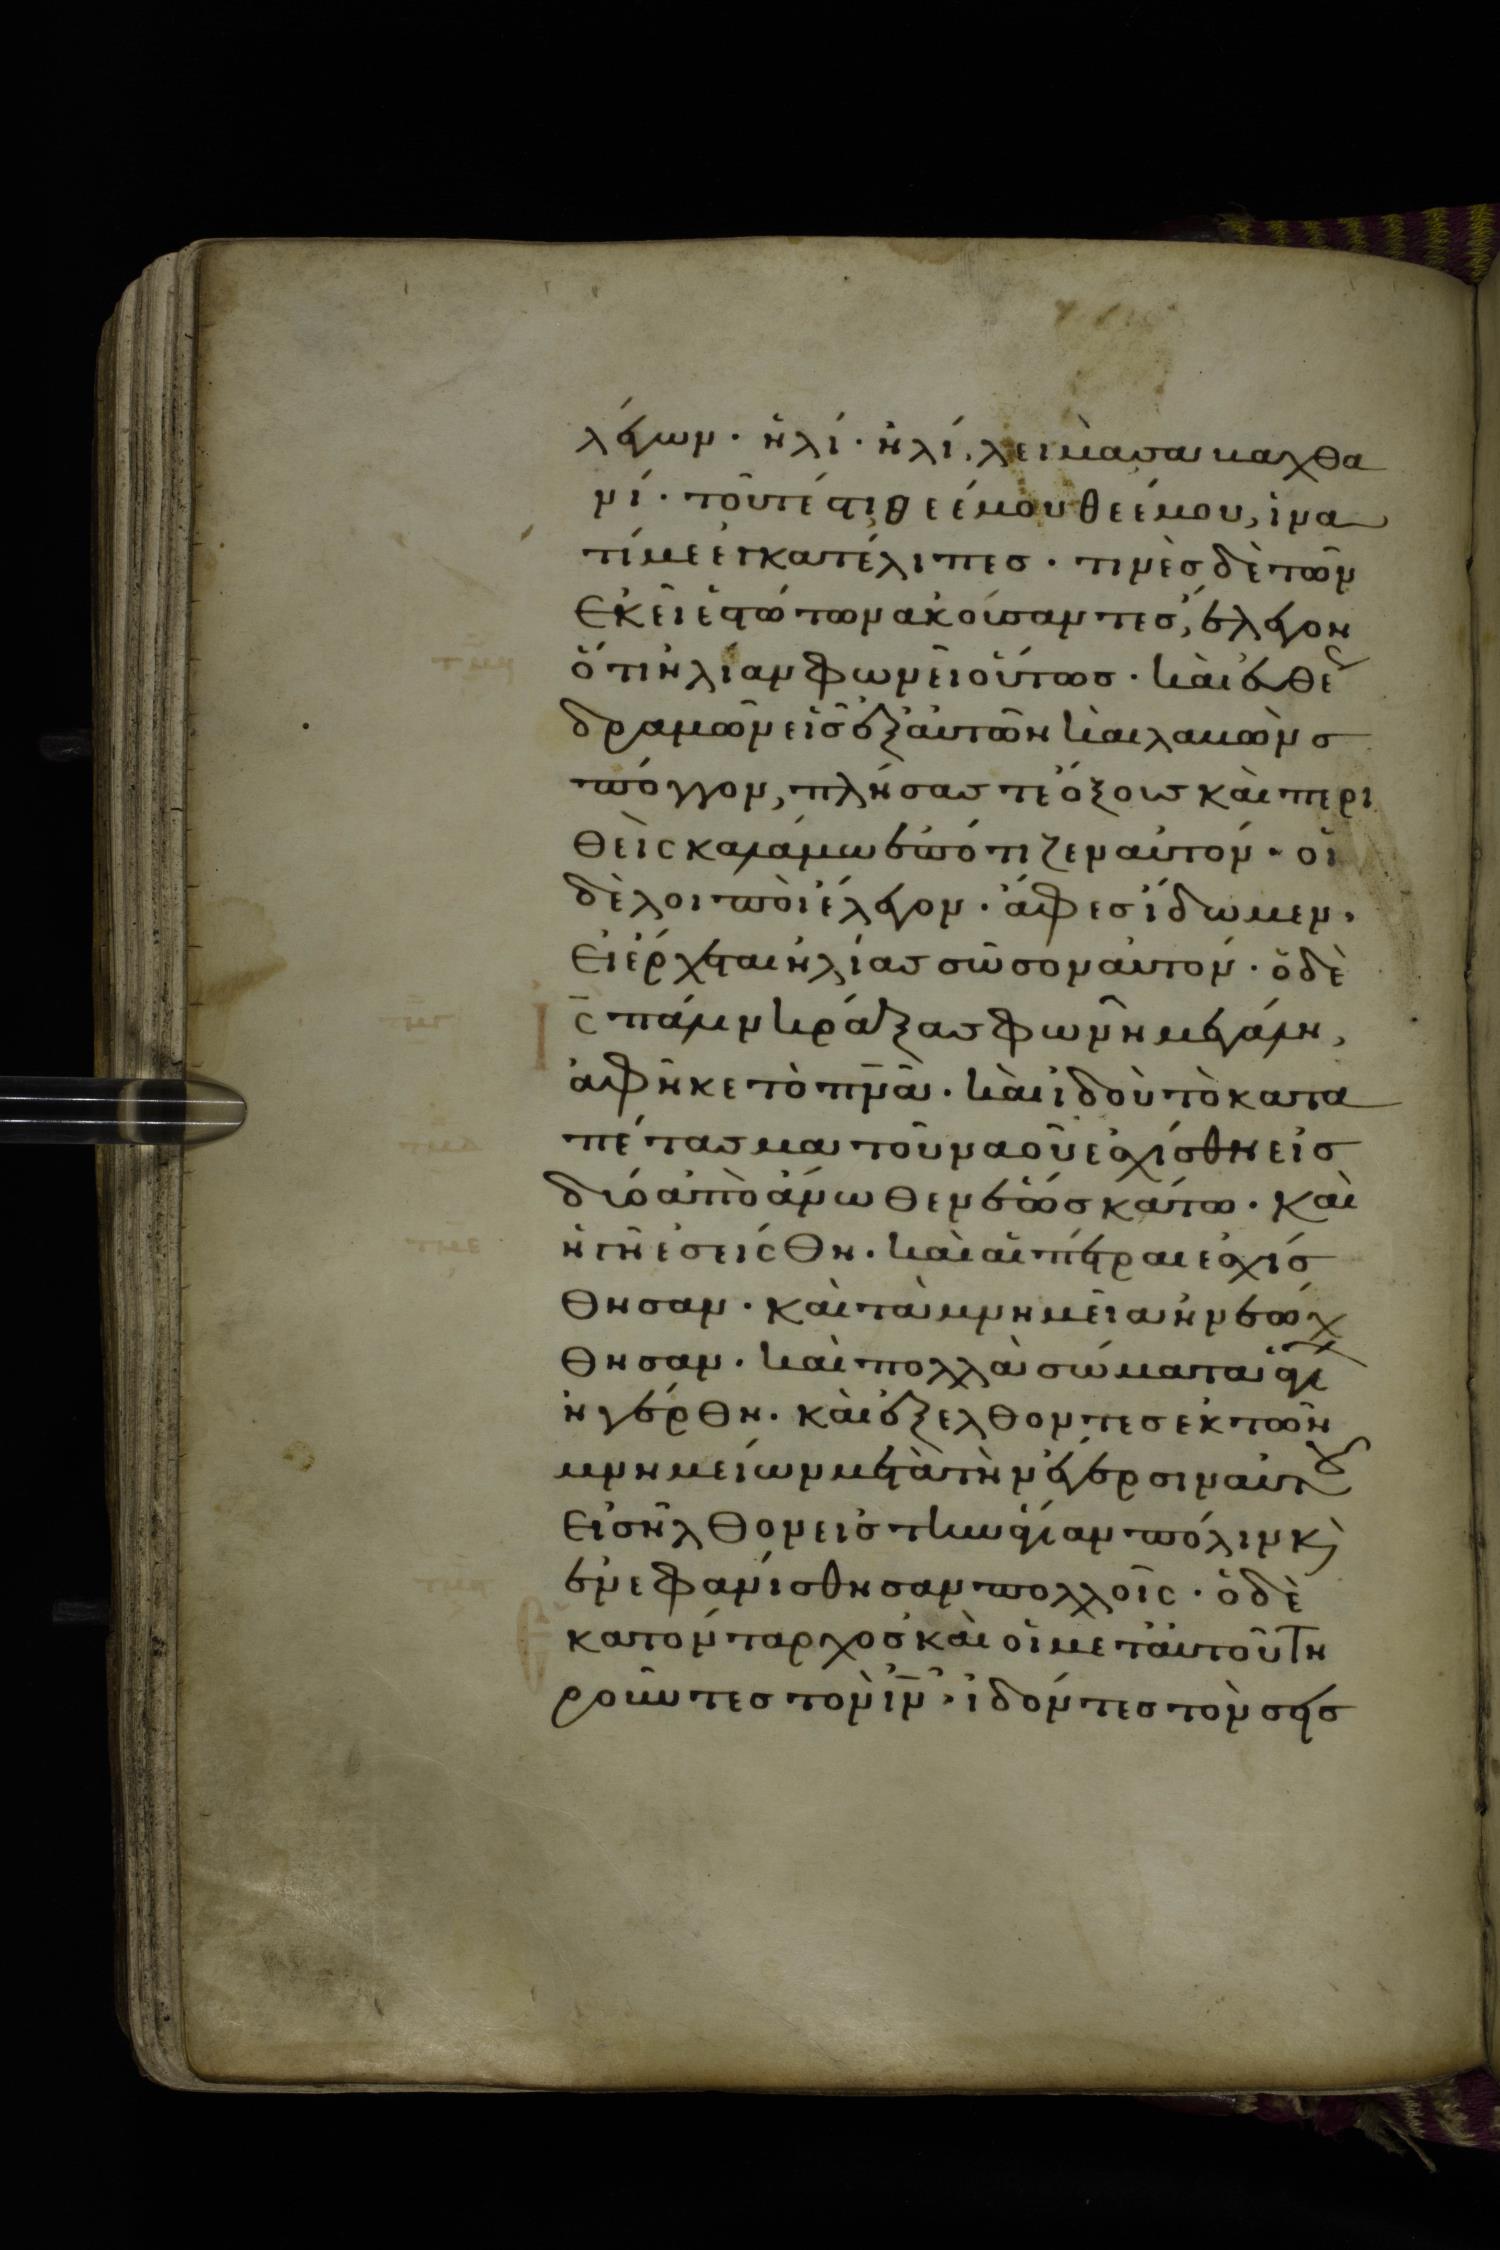 λέγων · ἠλί · ἠλί, λειμὰ σαβαχθα
νί · τοῦτέστι θεέ μου θεέ μου, ἱνα
τί με ἐγκατέλιπες · τινὲς δὲ τῶν
ἐκεῖ ἑστώτων ἀκούσαντες, ἔλεγον
ὅτι ἠλίαν φωνεῖ οὕτως · καὶ εὐθέ
δραμῶν εἷς ἐξ αὐτῶν καὶ λαβὼν σ
πόγγον, πλήσας τε ὄξους καὶ περι
θεὶς καλάμω ἐπότιζεν αὐτόν · οἱ
δὲ λοιποὶ ἔλεγον · ἄφες ἴδωμεν ·
εἰ ἔρχεται ἠλίας σῶσον αὐτόν · ὁ δὲ
ς̄ πάλιν κράξας φωνῆ μεγάλη,
ἀφῆκε τὸ πν̄ᾱ · καὶ ἰδοὺ τὸ κατα
πέτασμα τοῦ ναοῦ ἐσχίσθη εἰς
δύο ἀπὸ ἄνωθεν ἕως κάτω · καὶ
ἡ γῆ ἐσείσθη · καὶ αἱ πέτραι ἐσχίσ
θησαν · καὶ τὰ μνημεῖα ἠνεώχ
θησαν · καὶ πολλὰ σώματα ἁγί
ἠγέρθη · καὶ ἐξελθοντες ἐκ τῶν
μνημείων μετὰ τὴν ἔγερσιν αὐτ
εἰσῆλθον εἰς τὴν ἁγίαν πόλιν κ
ἐνεφανίσθησαν πολλοῖς · ὁ δὲ
κατόνταρχος καὶ οἱ μετ' αὐτοῦ τη
ροῦντες τὸν ῑν̄ · ἰδόντες τὸν σεισ